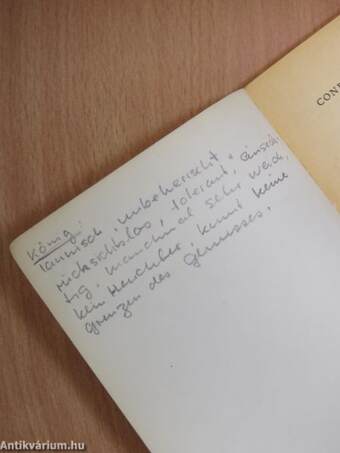 König:
launisch, unbeherrscht
rücksichtslos, tolerant, einsich-
tig, manchmal sehr weich,
kein Herrscher, kennt keine
grenzen des genusses.
CON
Antikvárium.hu